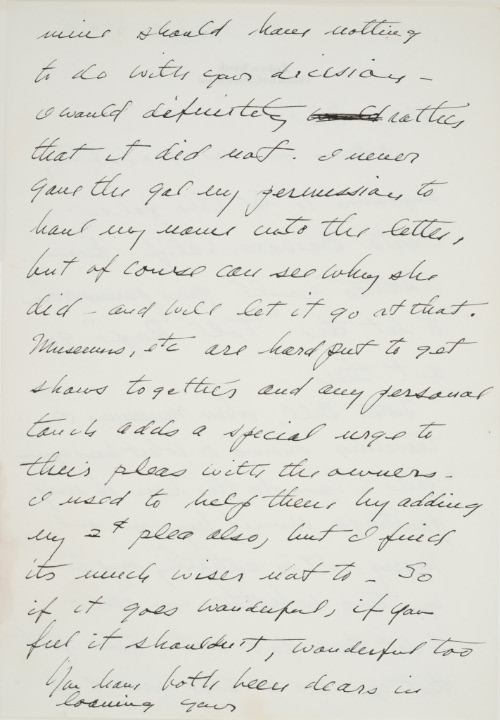 mine should have nothing
to do with your decision –
I would definitely would rather
that it did not. I never
gave the gal my permission to
haul my name into the letter,
but of course can see why she
did – and will let it go at that.
Museums, etc are hard put to get
shows together and any personal
touch adds a special urge to
their pleas with the owners –
I used to help them by adding
my 2¢ plea also, but I find
its much wiser not to – So
if it goes wonderful, if you
feel it shouldn't, wonderful too
You have both been dears in
loaning your